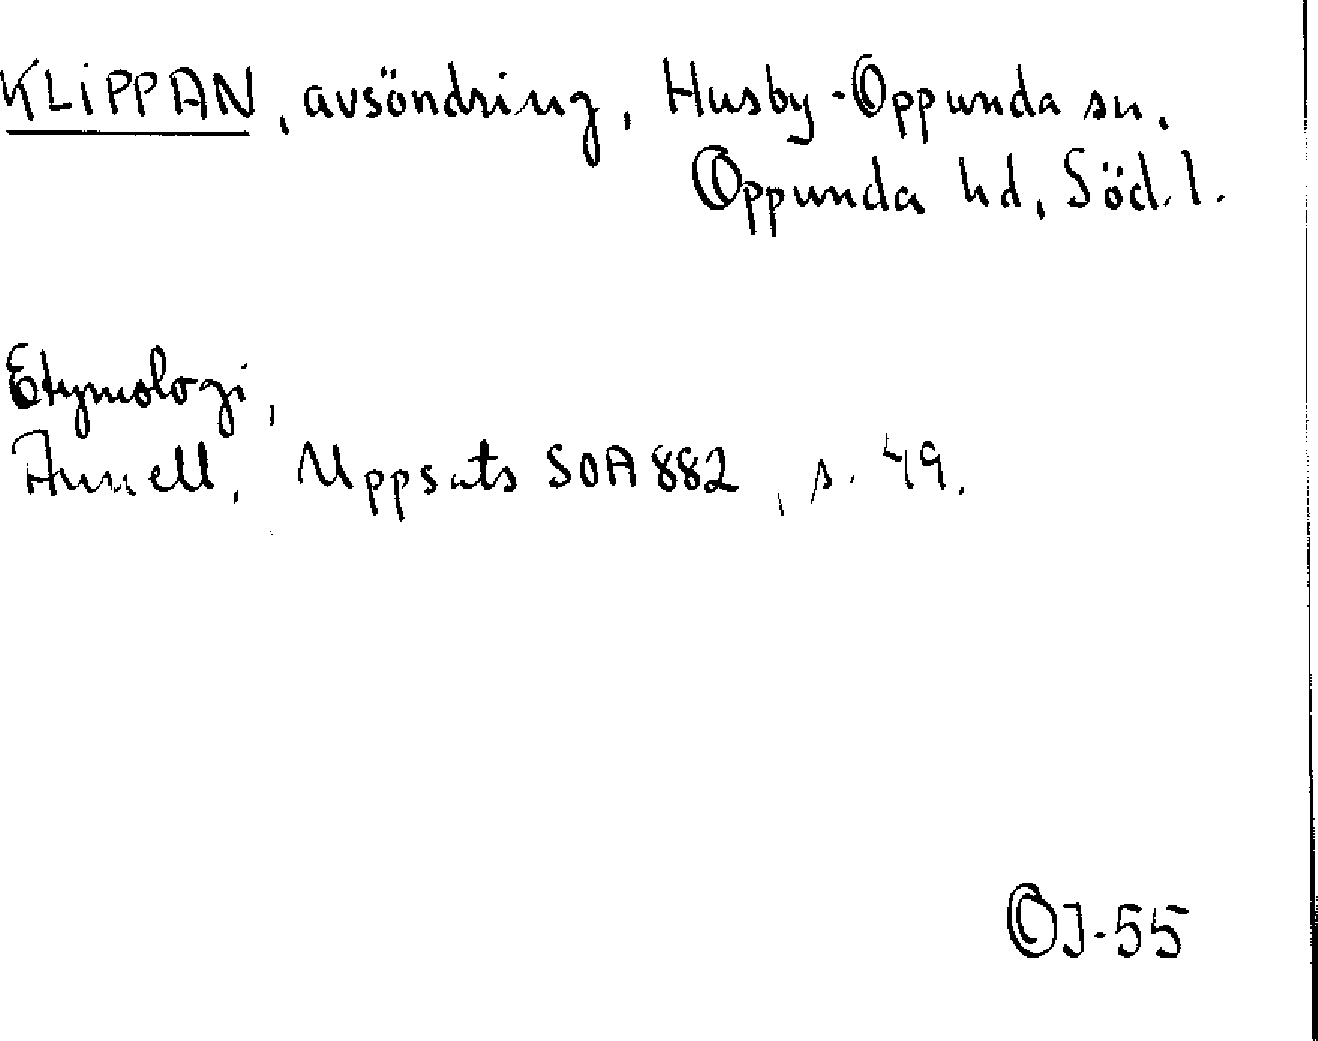 KLIPPAN, avsöndring, Husby-Oppunda sn.
Oppunda hd, Söd. l.
Etymologi,
Uppsats SOA 882, s. 49.
OJ-55